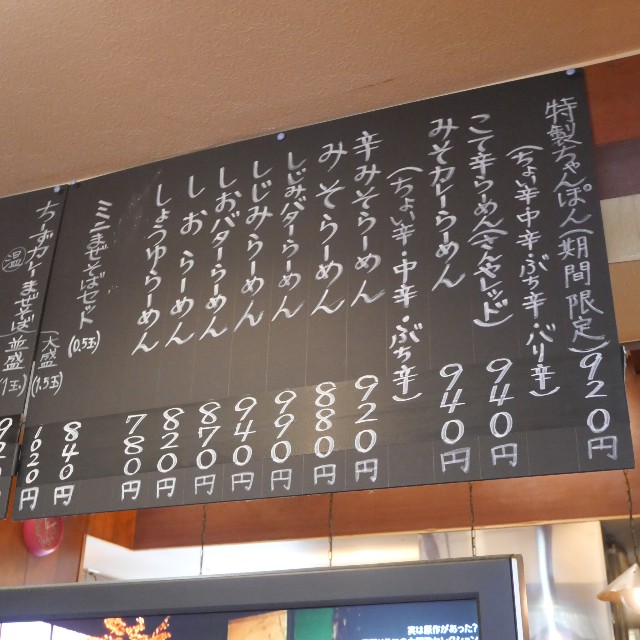 特製ちゃんぽん(期間限定) 920円
(ちょい辛 中辛・ぶち辛・バリ辛)
こて辛らーめん(さんやレッド) 940円
みそカレーらーめん 940円
(ちょい辛・中辛・ぶち辛)
辛みそらーめん 920円
みそらーめん 880円
しじみバターらーめん 990円
しじみらーめん 940円
しおバターらーめん 870円
しおらーめん 820円
しょうゆらーめん 780円
ミニまぜそばセット(0.5玉) 840円
(大盛)(1.5玉) 620円
ちーずカレーまぜそば 並盛(1玉)
温
実は原作があった?